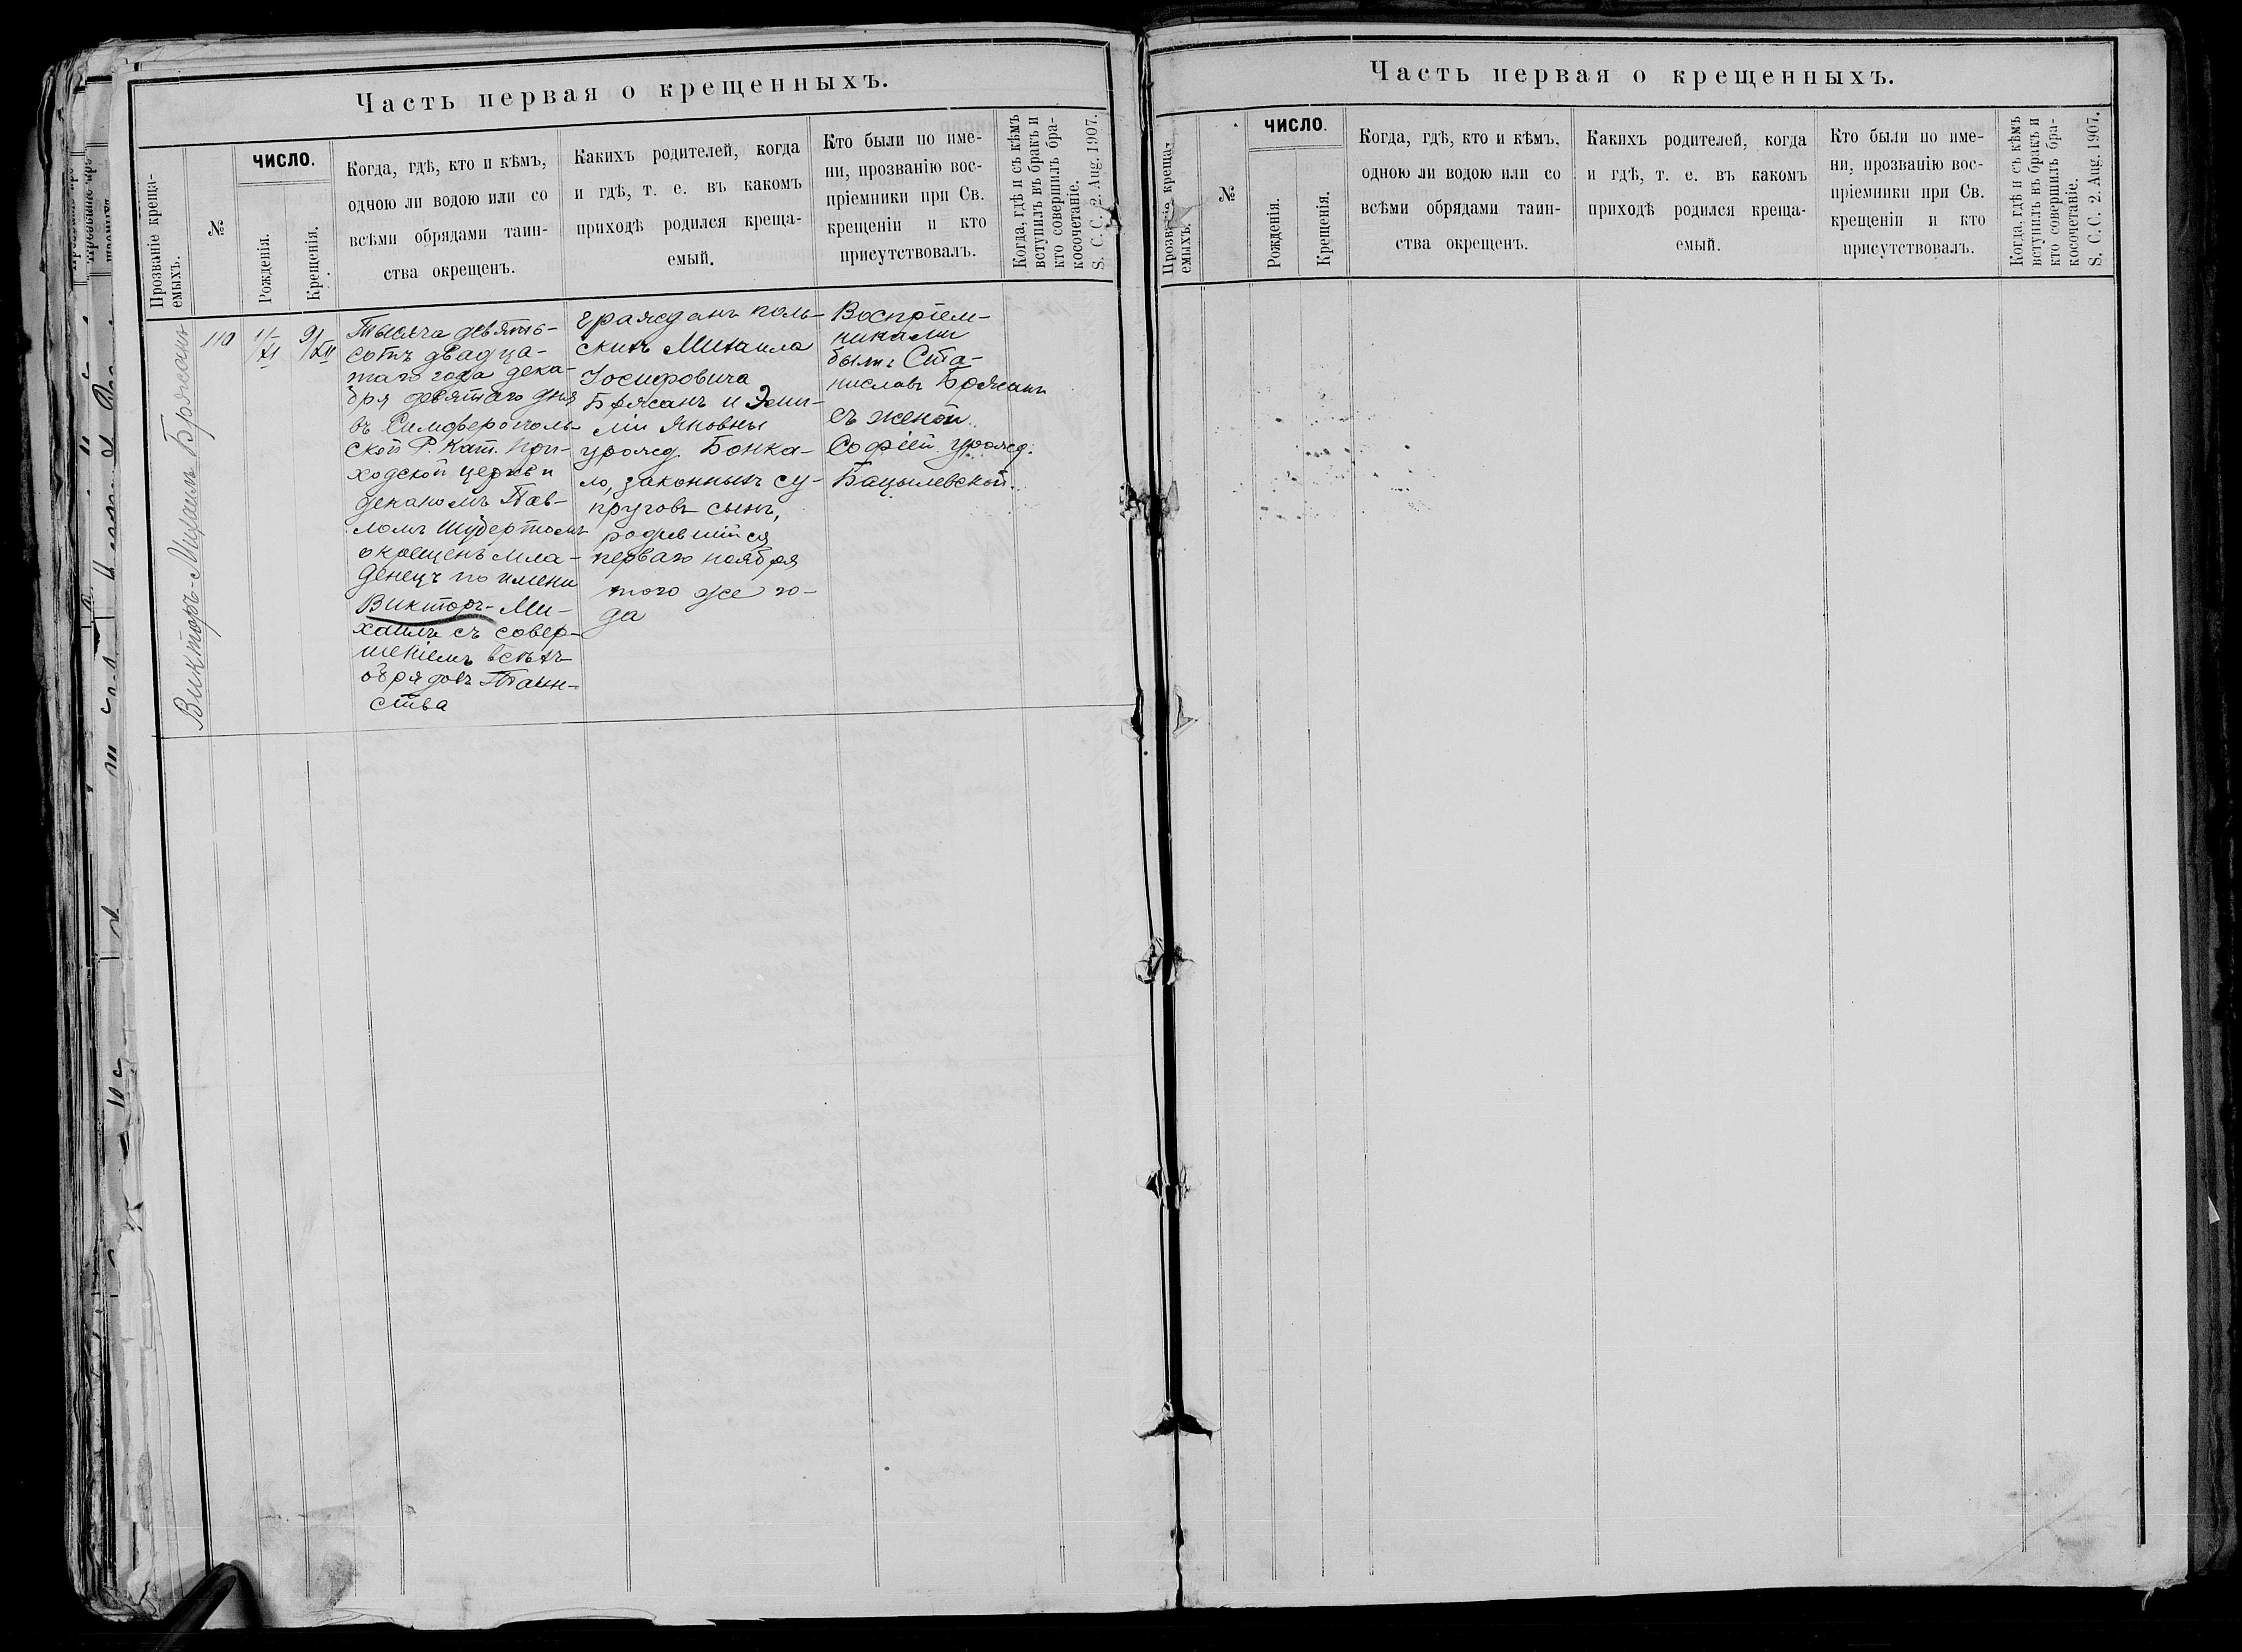 Часть первая о крещенныхъ.
Прозваніе креща-
емыхъ.
№
ЧИСЛО.
Рожденія.
Крещенія.
Когда, гдѣ, кто и кѣмъ,
одною ли водою или со
всѣми обрядами таин-
ства окрещенъ.
Какихъ родителей, когда
и гдѣ, т. е. въ какомъ
приходѣ родился креща-
емый.
Кто были по име-
ни, прозванію вос-
пріемники при Св.
крещеніи и кто
присутствовалъ.
Когда, гдѣ и съ кѣмъ
вступилъ въ бракъ и
кто совершилъ бра-
косочетаніе.
S. C. C. 2. Aug. 1907.
Викторъ-Михаилъ Брясанъ
110
1/XI
9/XII
Тысяча девять-
сотъ двадца-
таго года дека-
бря девятаго дня
въ Симферополь-
ской Р. Кат. при-
ходской церкви
деканомъ Пав-
ломъ Шубертомъ
окрещенъ мла-
денецъ по имени
Викторъ-Ми-
хаилъ съ совер-
шеніемъ всѣхъ
обрядовъ Таин-
ства
гражданъ поль-
скихъ Михаила
Іосифовича
Брясанъ и Эми-
ліи Яковны
урожд. Бонка-
ло, законныхъ су-
пруговъ сынъ,
родившійся
перваго ноября
того же го-
да
Воспріем-
никами
были: Ста-
ниславъ Брясанъ
съ женой
Софіей урожд.
Бацылевской.
Часть первая о крещенныхъ.
Прозваніе креща-
емыхъ.
№
ЧИСЛО.
Рожденія.
Крещенія.
Когда, гдѣ, кто и кѣмъ,
одною ли водою или со
всѣми обрядами таин-
ства окрещенъ.
Какихъ родителей, когда
и гдѣ, т. е. въ какомъ
приходѣ родился креща-
емый.
Кто были по име-
ни, прозванію вос-
пріемники при Св.
крещеніи и кто
присутствовалъ.
Когда, гдѣ и съ кѣмъ
вступилъ въ бракъ и
кто совершилъ бра-
косочетаніе.
S. C. C. 2. Aug. 1907.